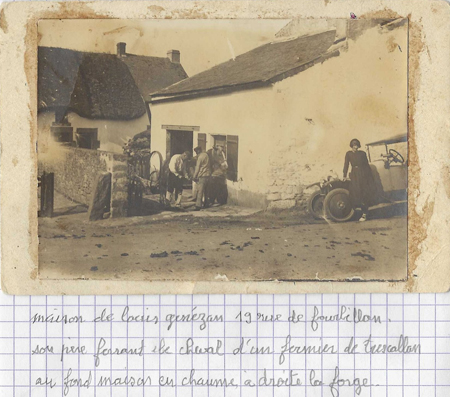 maison de louis genézan 19 rue de fourbillan.
son pere ferrant le cheval d'un fermier de trescallan
au fond maison en chaume à droite la forge.